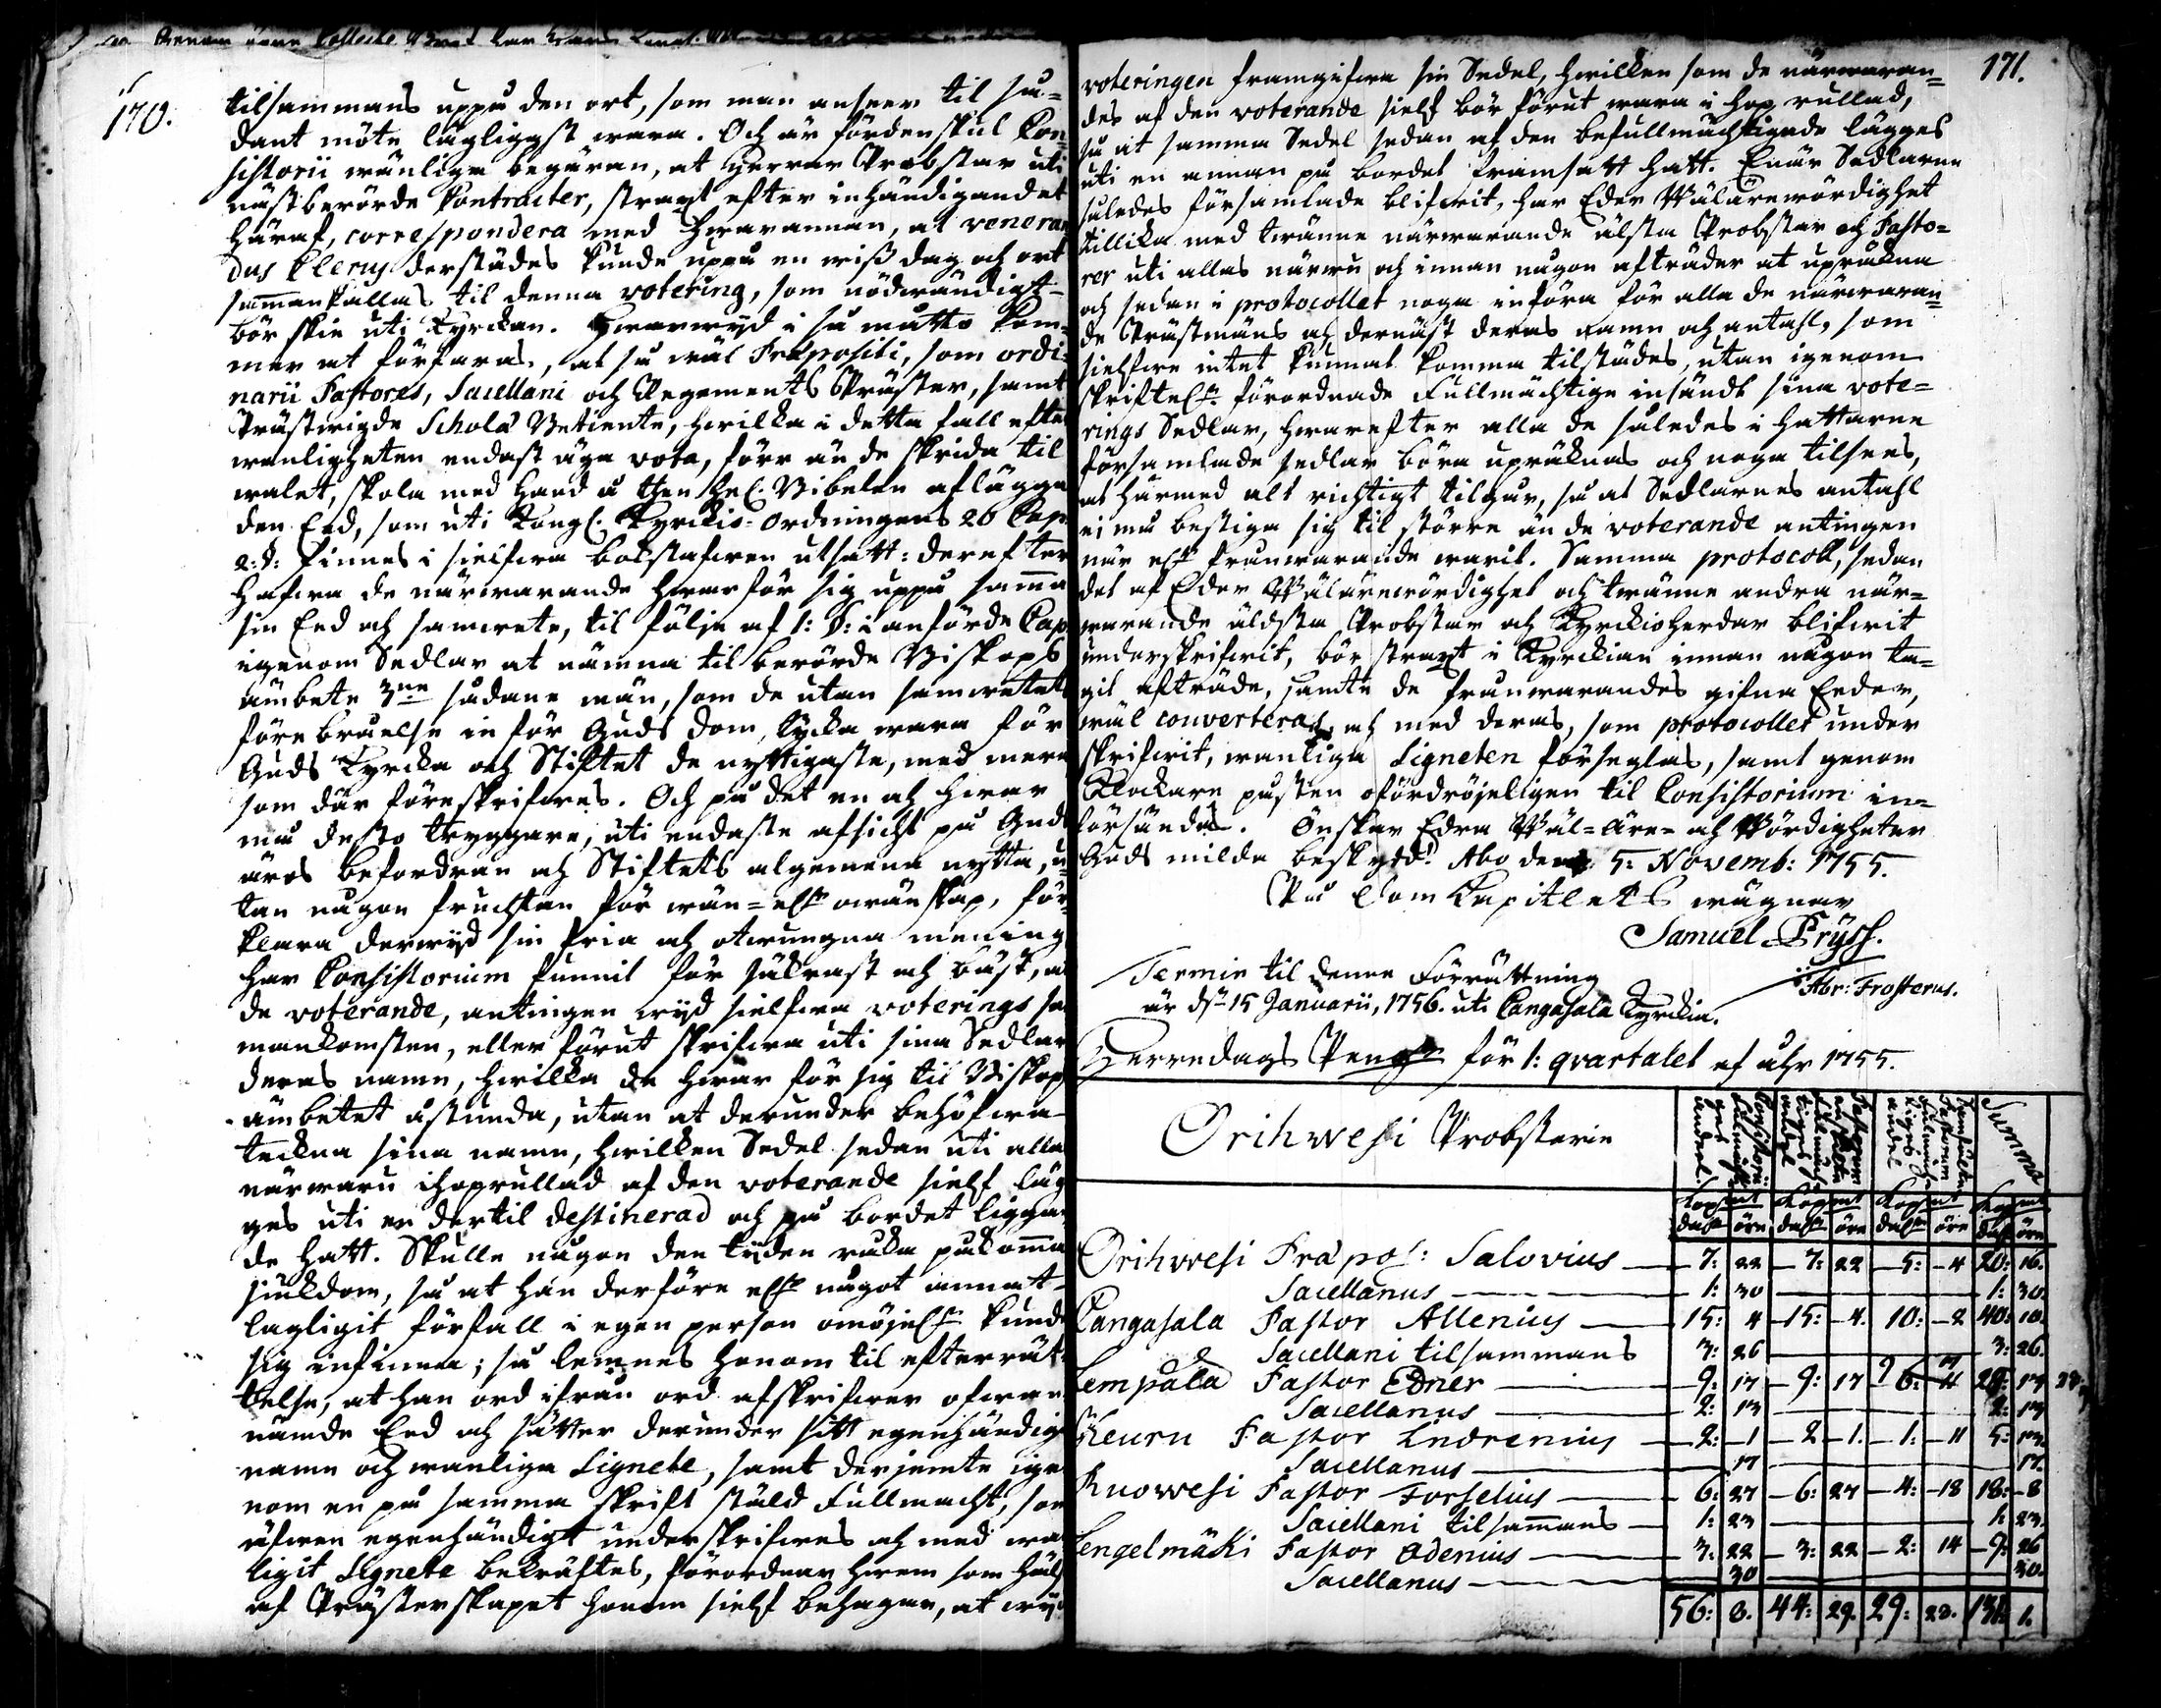 170.
tilsammans uppå den ort, som man anseer til så=
dant möte lägligast wara. Och är fördenskul Con=
sistorii wänliga begäran, at Herrar Probstar uti
näst berörde Contracter, straxt efter inhändigandet
häraf, correspondera med hwarannan, at veneran
dus Clerus derstädes kunde uppå en wiss dag och ort
sam̄ankallas til denna votering, som nödwändigt
bör skie uti Kyrckan. Hwarwyd i så måtto kom=
mer at förfaras, at så wäl Præpositi, som ordi=
narii Pastores, Sacellani och Regements Präster, samt
Prästwigde Scholæ Betiente, hwilka i detta fall efter
wanligheten endast äga vota, förr än de skrida til
walet, skola med hand å then Hel. Bibelen aflägga
den Eed, som uti Kongl. Kyrckio-Ordningens 20 Cap.
2: §: finnes i sielfwa bokstafwen utsatt: derefter
hafwa de närwarande hwar för sig uppå sam̄a
sin Eed och samwete, til följe af 1: §: i anförde Cap.
igenom Sedlar at nämna til berörde Biskops
ämbete 3ne sådane män, som de utan samwetets
förebråelse in för Guds dom, tycka wara för
Guds Kyrcka och Stiftet de nyttigaste, med mera
som där föreskrifwes. Och på det en och hwar
må desto tryggare, uti endaste afsicht på Guds
äros befordran och Stiftets algemena nytta, u=
tan någon fruchtan för wän= eller owänskap, för=
klara derwyd sin fria och otwungna mening
har Consistorium funnit för säkrast och bäst, at
de voterande, antingen wyd sielfwa voterings sa
mankomsten, eller förut skrifwa uti sina Sedlar
deras namn, hwilka de hwar för sig til Biskops
ämbetet åstunda, utan at derunder behöfwa
teckna sina namn, hwilken Sedel sedan uti allas
närwaru ihoprullad af den voterande sielf läg
ges uti en dertil destinerad och på bordet liggan
de hatt. Skulle någon den tiden råka påkom̄a
siukdom, så at han derföre eller något annat
lagligit förfall i egen person omöjel:n kunde
sig infinna; så lemnes honom til efterrät=
telse, at han ord ifrån ord afskrifwer ofwan
nämde Eed och sätter derunder sitt egenhändiga
namn och wanliga Signete, samt derjemte ige
nom en på samma skrift stäld Fullmacht, som
äfwen egenhändigt underskrifwes och med wan
ligit Signete bekräftes, förordnar hwem som hälst
af Prästerskapet honom sielf behagar, at wyd
171.
voteringen framgifwa sin Sedel, hwilken som de närwaran=
des af den voterande sielf bör förut wara i hop rullad,
så at samma Sedel sedan af den befullmächtigade lägges
uti en annan på bordet framsatt hatt. Enär Sedlarne
således församlade blifwit, har Eder Wälärewördighet
tillika med twänne närwarande älsta Probstar och Pasto=
rer uti allas närwaru och innan någon afträder at upräkna
och sedan i protocollet noga införa för alla de närwaran=
de Prästmäns och dernäst deras namn och antahl, som
sielfwe intet kunnat komma tilstädes, utan igenom
skriftel:n förordnade Fullmächtige insändt sina vote=
rings Sedlar, hwarefter alla de således i hattarne
församlade sedlar böra upräknas och noga tilsees,
at härmed alt richtigt tilgår, så at Sedlarnes antahl
ei må bestiga sig til större än de voterande antingen
när eller frånwarande warit. Samma protocoll, sedan
det af Eder Wälärewördighet och twänne andra när=
warande äldsta Probstar och Kyrckioherdar blifwit
underskrifwit, bör straxt i Kyrckian innan någon ta=
git afträde, samte de frånwarandes gifna Eeder,
wäl converteras och med deras, som protocollet under
skrifwit, wanliga Signeten förseglas, samt genom
Klockare posten ofördröjeligen til Consistorium in=
försändas. Önskar Edra Wäl= äre= och Wördigheter
Guds milda beskydd! Åbo den 5: Novemb: 1755.
På Dom Capitlets wägnar
Samuel Pryss.
Abr: Frosterus.
Termin til denne Förrättning
är d. 15 Januarii, 1756. uti Cangasala Kyrckia.
Herredags Peng:r för 1: qvartalet af åhr 1755.
Orihwesi Probsterie
Summa
Kopmt Kopmt Kopmt Kopmt
daler öre daler öre daler öre daler öre
Orihwesi Præpos: Salovius 7: 22 7: 22 5: 4 20: 16.
Sacellanus 1: 30 1: 30.
Cangasala Pastor Allenius 15: 4 15: 4. 10: 2 40: 10.
Sacellani tilsammans 3: 26 3: 26.
Lempälä Pastor Edner 9: 17 9: 17
Sacellanus 2: 13 2: 13
Keuru Pastor Indrenius 2: 1 2 1. 1: 11 5: 13.
Sacellanus 17 17.
Ruowesi Pastor Forselius 6: 27 6: 27 4: 18 18: 8
Sacellani tilsam̄ans 1: 23 1: 23.
Lengelmäki Pastor Odenius 3: 22 3: 22 2: 14 9: 26
Sacellanus 30 30.
56: 8. 44: 29. 29: 28. 131: 1.